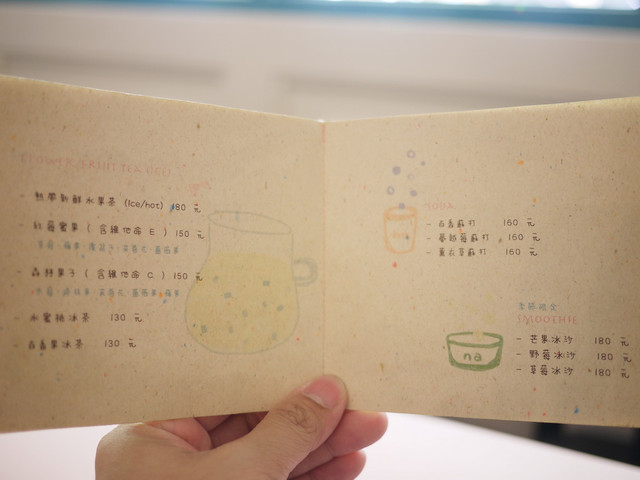 FLOWER FRUIT TEA
- 熱帶新鮮水果茶 (Ice/hot) 180 元
- 紅莓蜜果 ( 含維他命 E ) 150 元
- 森林果子 ( 含維他命 C ) 150 元
- 水蜜桃冰茶 130 元
- 百香果冰茶 130 元
SODA
- 百香蘇打 160 元
- 蔓越莓蘇打 160 元
- 薰衣草蘇打 160 元
SMOOTHIE
- 芒果冰沙 180 元
- 野莓冰沙 180 元
- 草莓冰沙 180 元
na